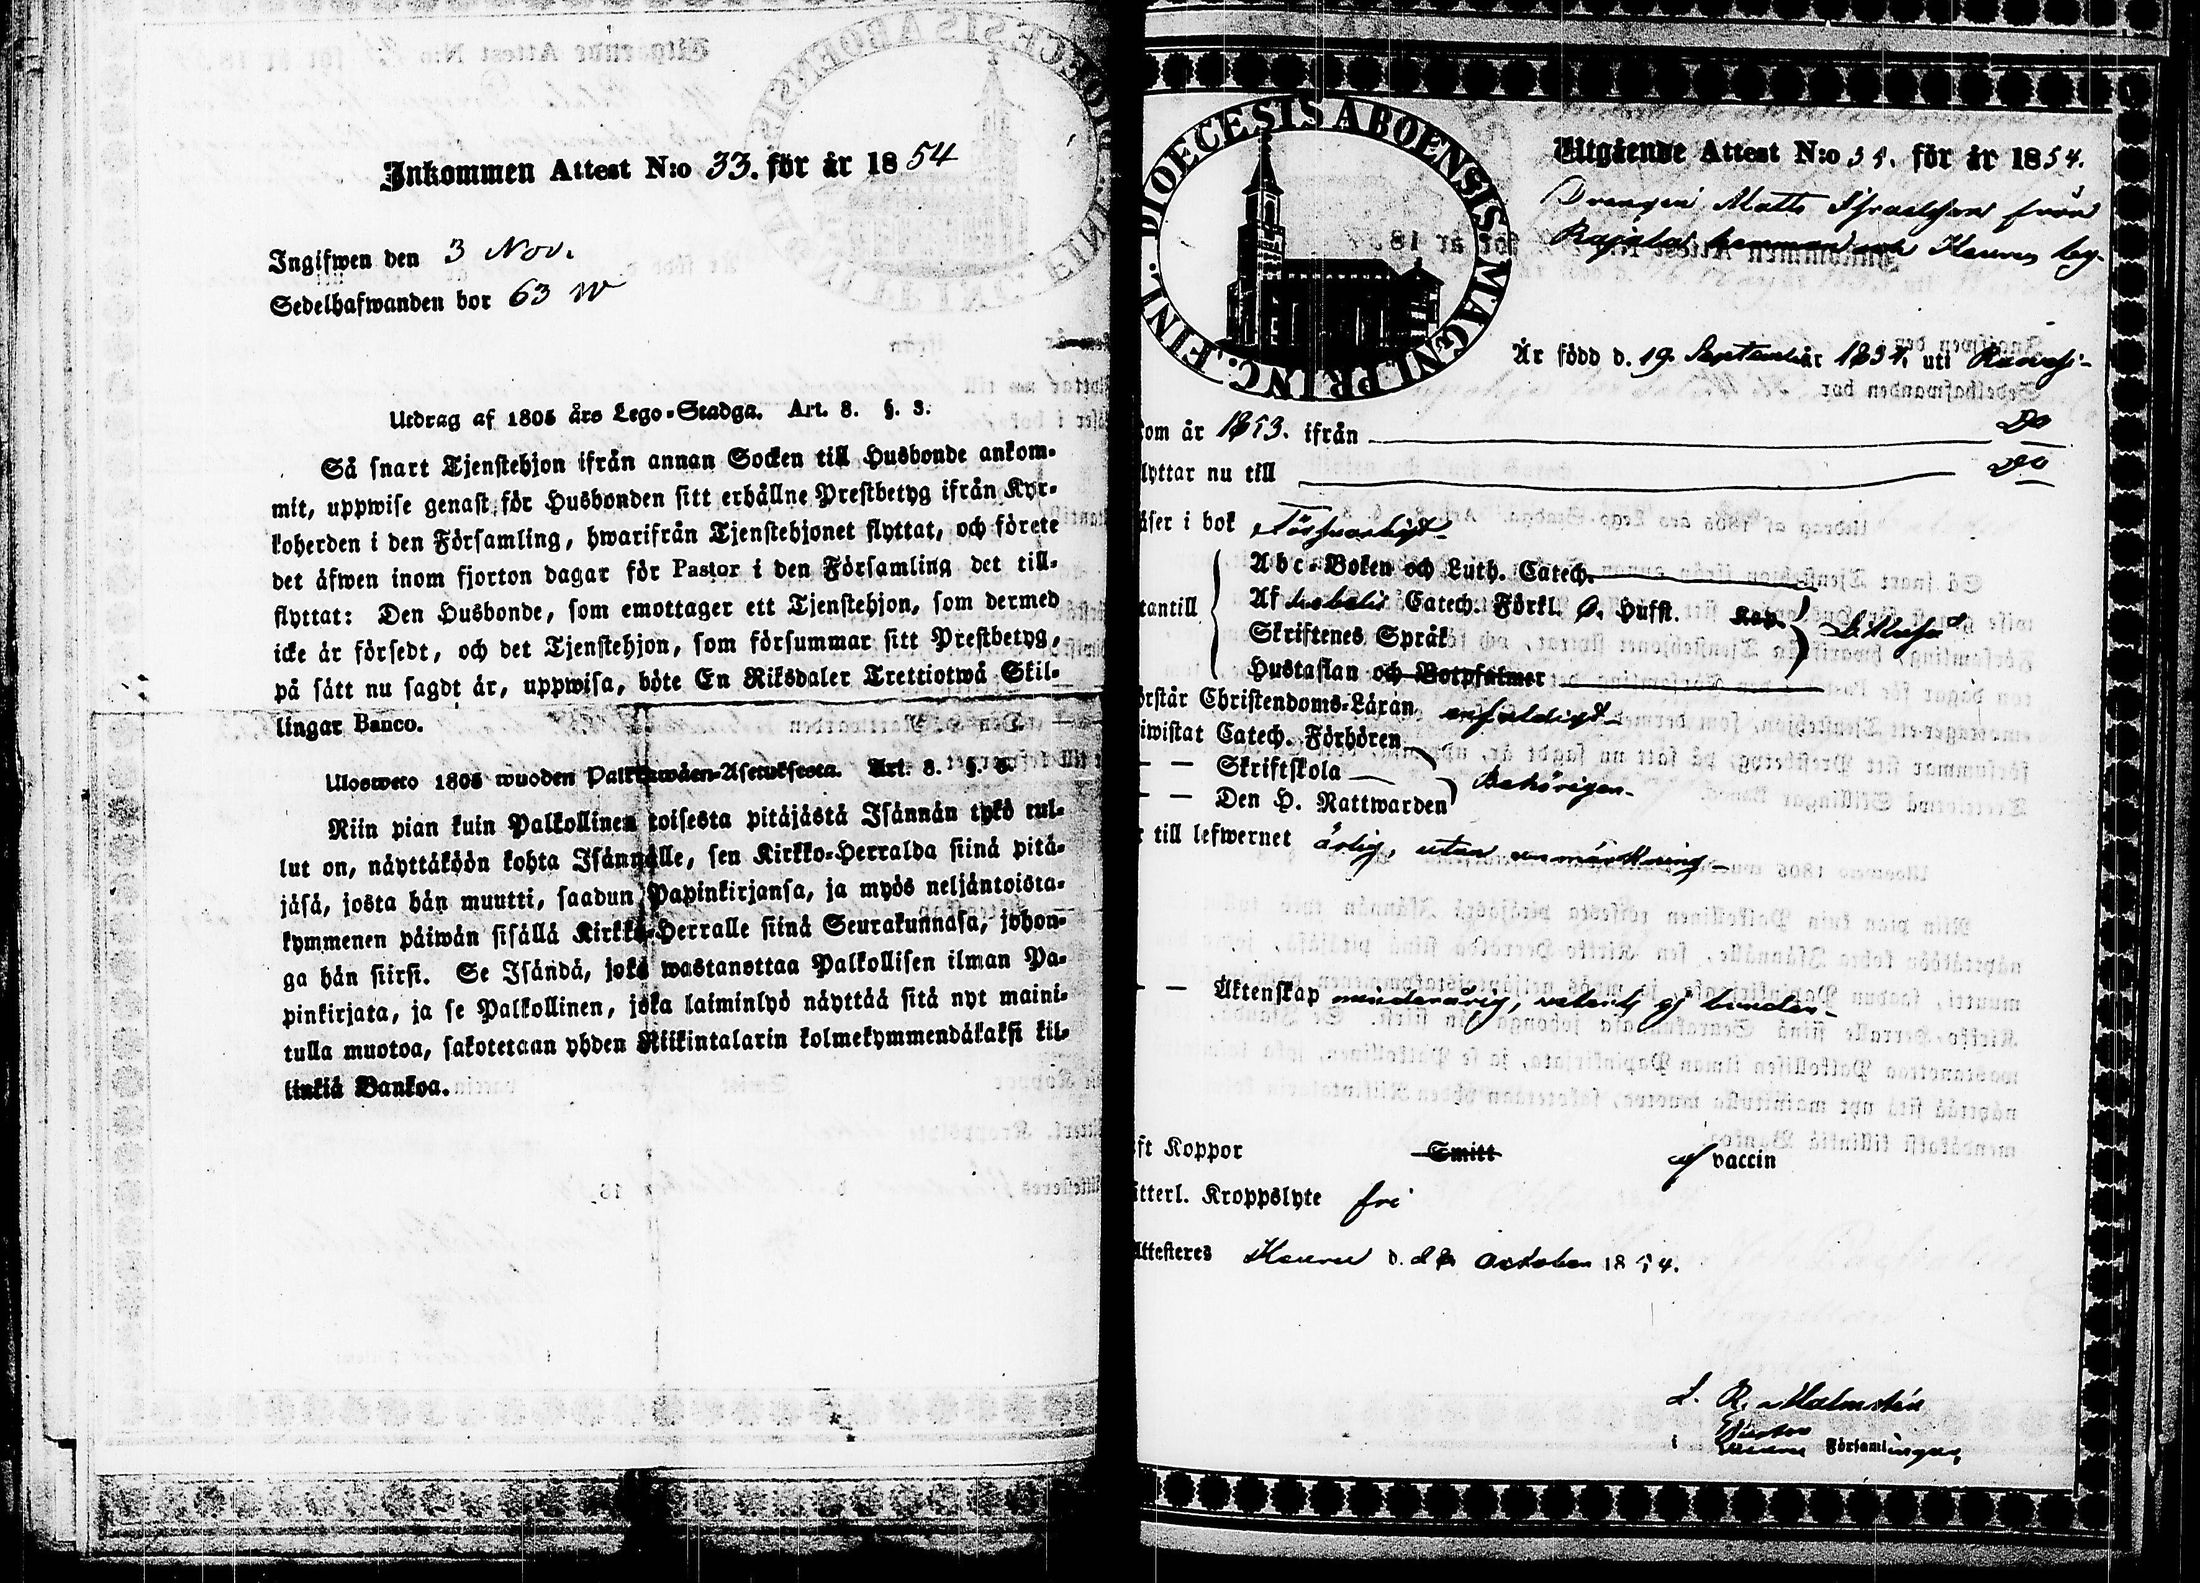 Inkommen Attest N:o 33. för år 1854
Ingifwen den 3 Nov.
Sedelhafwanden bor 63 W
Utdrag af 1805 års Lego-Stadga. Art. 8. §. 3.
Så snart Tjenstehjon ifrån annan Socken till Husbonde ankom-
mit, uppwise genast för Husbonden sitt erhållne Prestbetyg ifrån Kyr-
koherden i den Församling, hwarifrån Tjenstehjonet flyttat, och förete
det äfwen inom fjorton dagar för Pastor i den Församling det till-
flyttat: Den Husbonde, som emottager ett Tjenstehjon, som dermed
icke är försedt, och det Tjenstehjon, som försummar sitt Prestbetyg,
på sätt nu sagdt är, uppwisa, böte En Riksdaler Trettiotwå Skil-
lingar Banco.
Ulosweto 1805 wuoden Palkkawäen-Asetuksesta. Art. 8. §. 3.
Niin pian kuin Palkollinen toisesta pitäjästä Isännän tykö tul-
lut on, näyttäköön kohta Isännälle, sen Kirkko-Herralda siinä pitä-
jäsä, josta hän muutti, saadun Papinkirjansa, ja myös neljäntoista-
kymmenen päiwän sisällä Kirkko-Herralle siinä Seurakunnasa, johon-
ga hän siirsi. Se Isändä, joka wastanottaa Palkollisen ilman Pa-
pinkirjata, ja se Palkollinen, joka laiminlyö näyttää sitä nyt maini-
tulla muotoa, sakotetaan yhden Riikintalarin kolmekymmendäkaksi kil-
linkiä Bankoa.
DIOECESIS ABOENSIS MAGNI PRINC. FINL.
Utgående Attest N:o 35. för år 1854.
Drengen Matts Israelsson från
Rajala hemman och Keuru kap.
Är född d. 19 September 1834. uti
kom år 1853. ifrån Do
flyttar nu till Do
läser i bok Försvarligt
Abc-Boken och Luth. Catech.
utantill Af Catech. Förkl. Ö. Hufst. Kap.
Skriftenes Språk
Hustaflan och Botpsalmer
förstår Christendoms-Läran enfaldigt
biwistat Catech. Förhören
— — Skriftskola Behörigen
— — Den H. Nattwarden
är till lefwernet ärlig, utan anmärkning
— — Äktenskap minderårig, veterl. ej bunden
haft Koppor Smitt af vaccin
witterl. Kroppslyte fri
Attesteres Keuru d. 28 October 1854.
L. R. Malmstén
Pastor
i Keuru Församlingar.